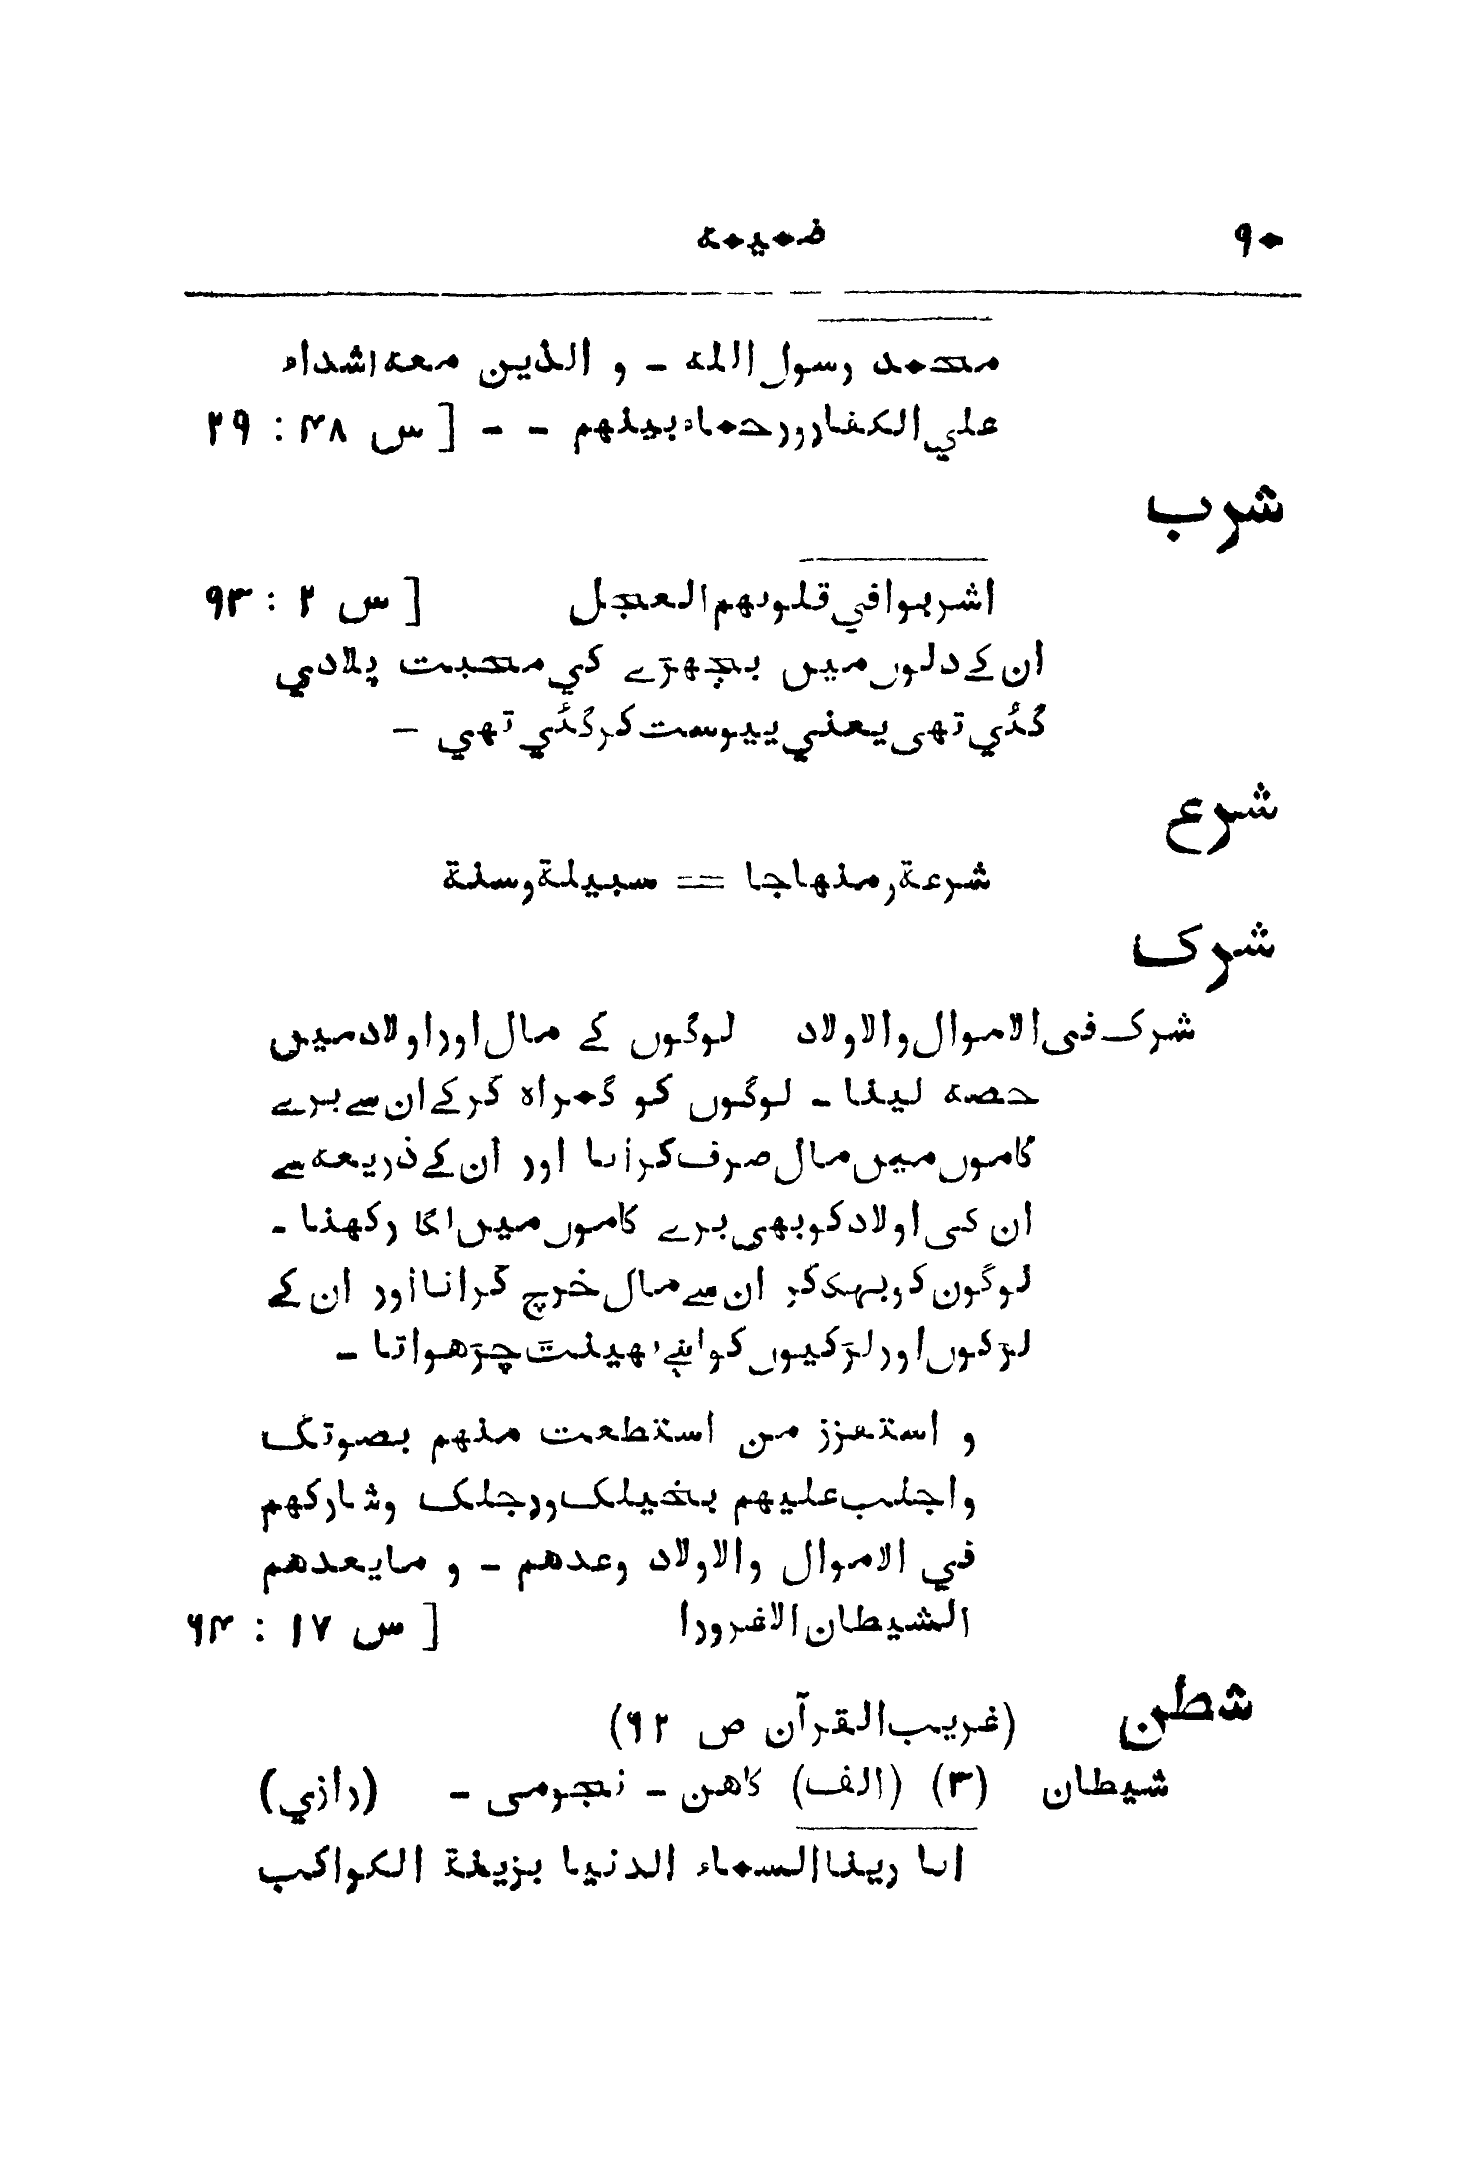 ۹۰ ضمیمه
محمد رسول الله - و الذین معه اشداء
علي الکفار ورحماء بینهم - - [ س ۴۸ : ۲۹
شرب
اشربوا في قلوبهم العجل [ س ۲ : ۹۳
ان کے دلوں میں بچھڑے کي محبت پلادي
گئي تھی یعنی پیوست کر گئي تھي -
شرع
شرعة ومنهاجا == سبیلة وسنة
شرک
شرک فی الاموال والاولاد لوگوں کے مال اور اولاد میں
حصه لینا - لوگوں کو گمراه کر کے ان سے برے
کاموں میں مال صرف کرانا اور ان کے ذریعه سے
ان کی اولاد کو بھی برے کاموں میں لگا رکھنا -
لوگون کو بہکا کر ان سے مال خرچ کرانا اور ان کے
لڑکوں اور لڑکیوں کو اپنے بھینٹ چڑھوانا -
و استفزز من استطعت منهم بصوتک
واجلب علیهم بخیلک ورجلک وشارکهم
في الاموال والاولاد وعدهم - و مایعدهم
الشیطان الاغرورا [ س ۱۷ : ۶۴
شطن (غریب القرآن ص ۶۲)
شیطان (۳) (الف) کاهن - نجومی - (رازي)
انا زینا السماء الدنیا بزینة الکواکب